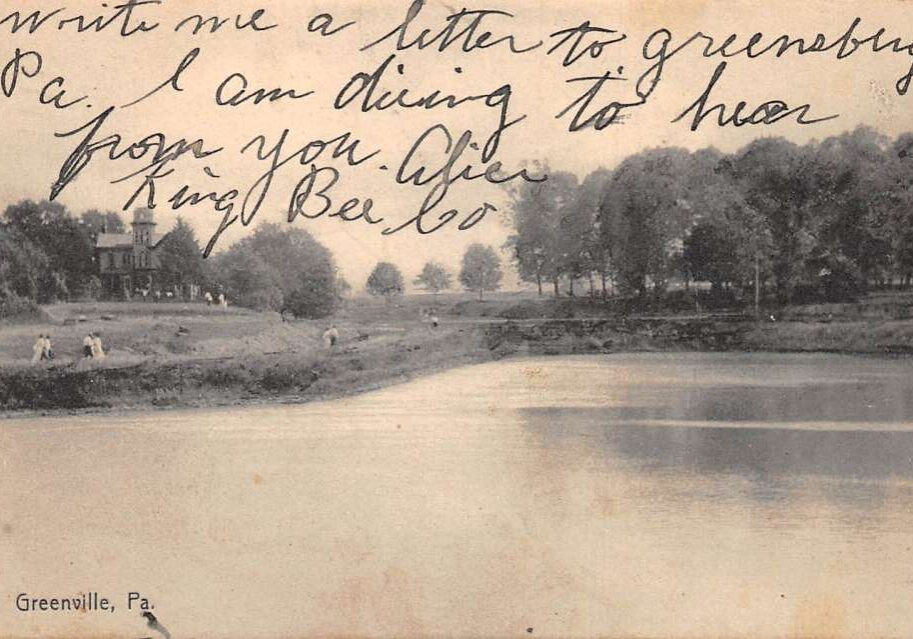 write me a letter to greensburg
Pa. I am dieing to hear
from you. Alice
King Bee Co
Greenville, Pa.